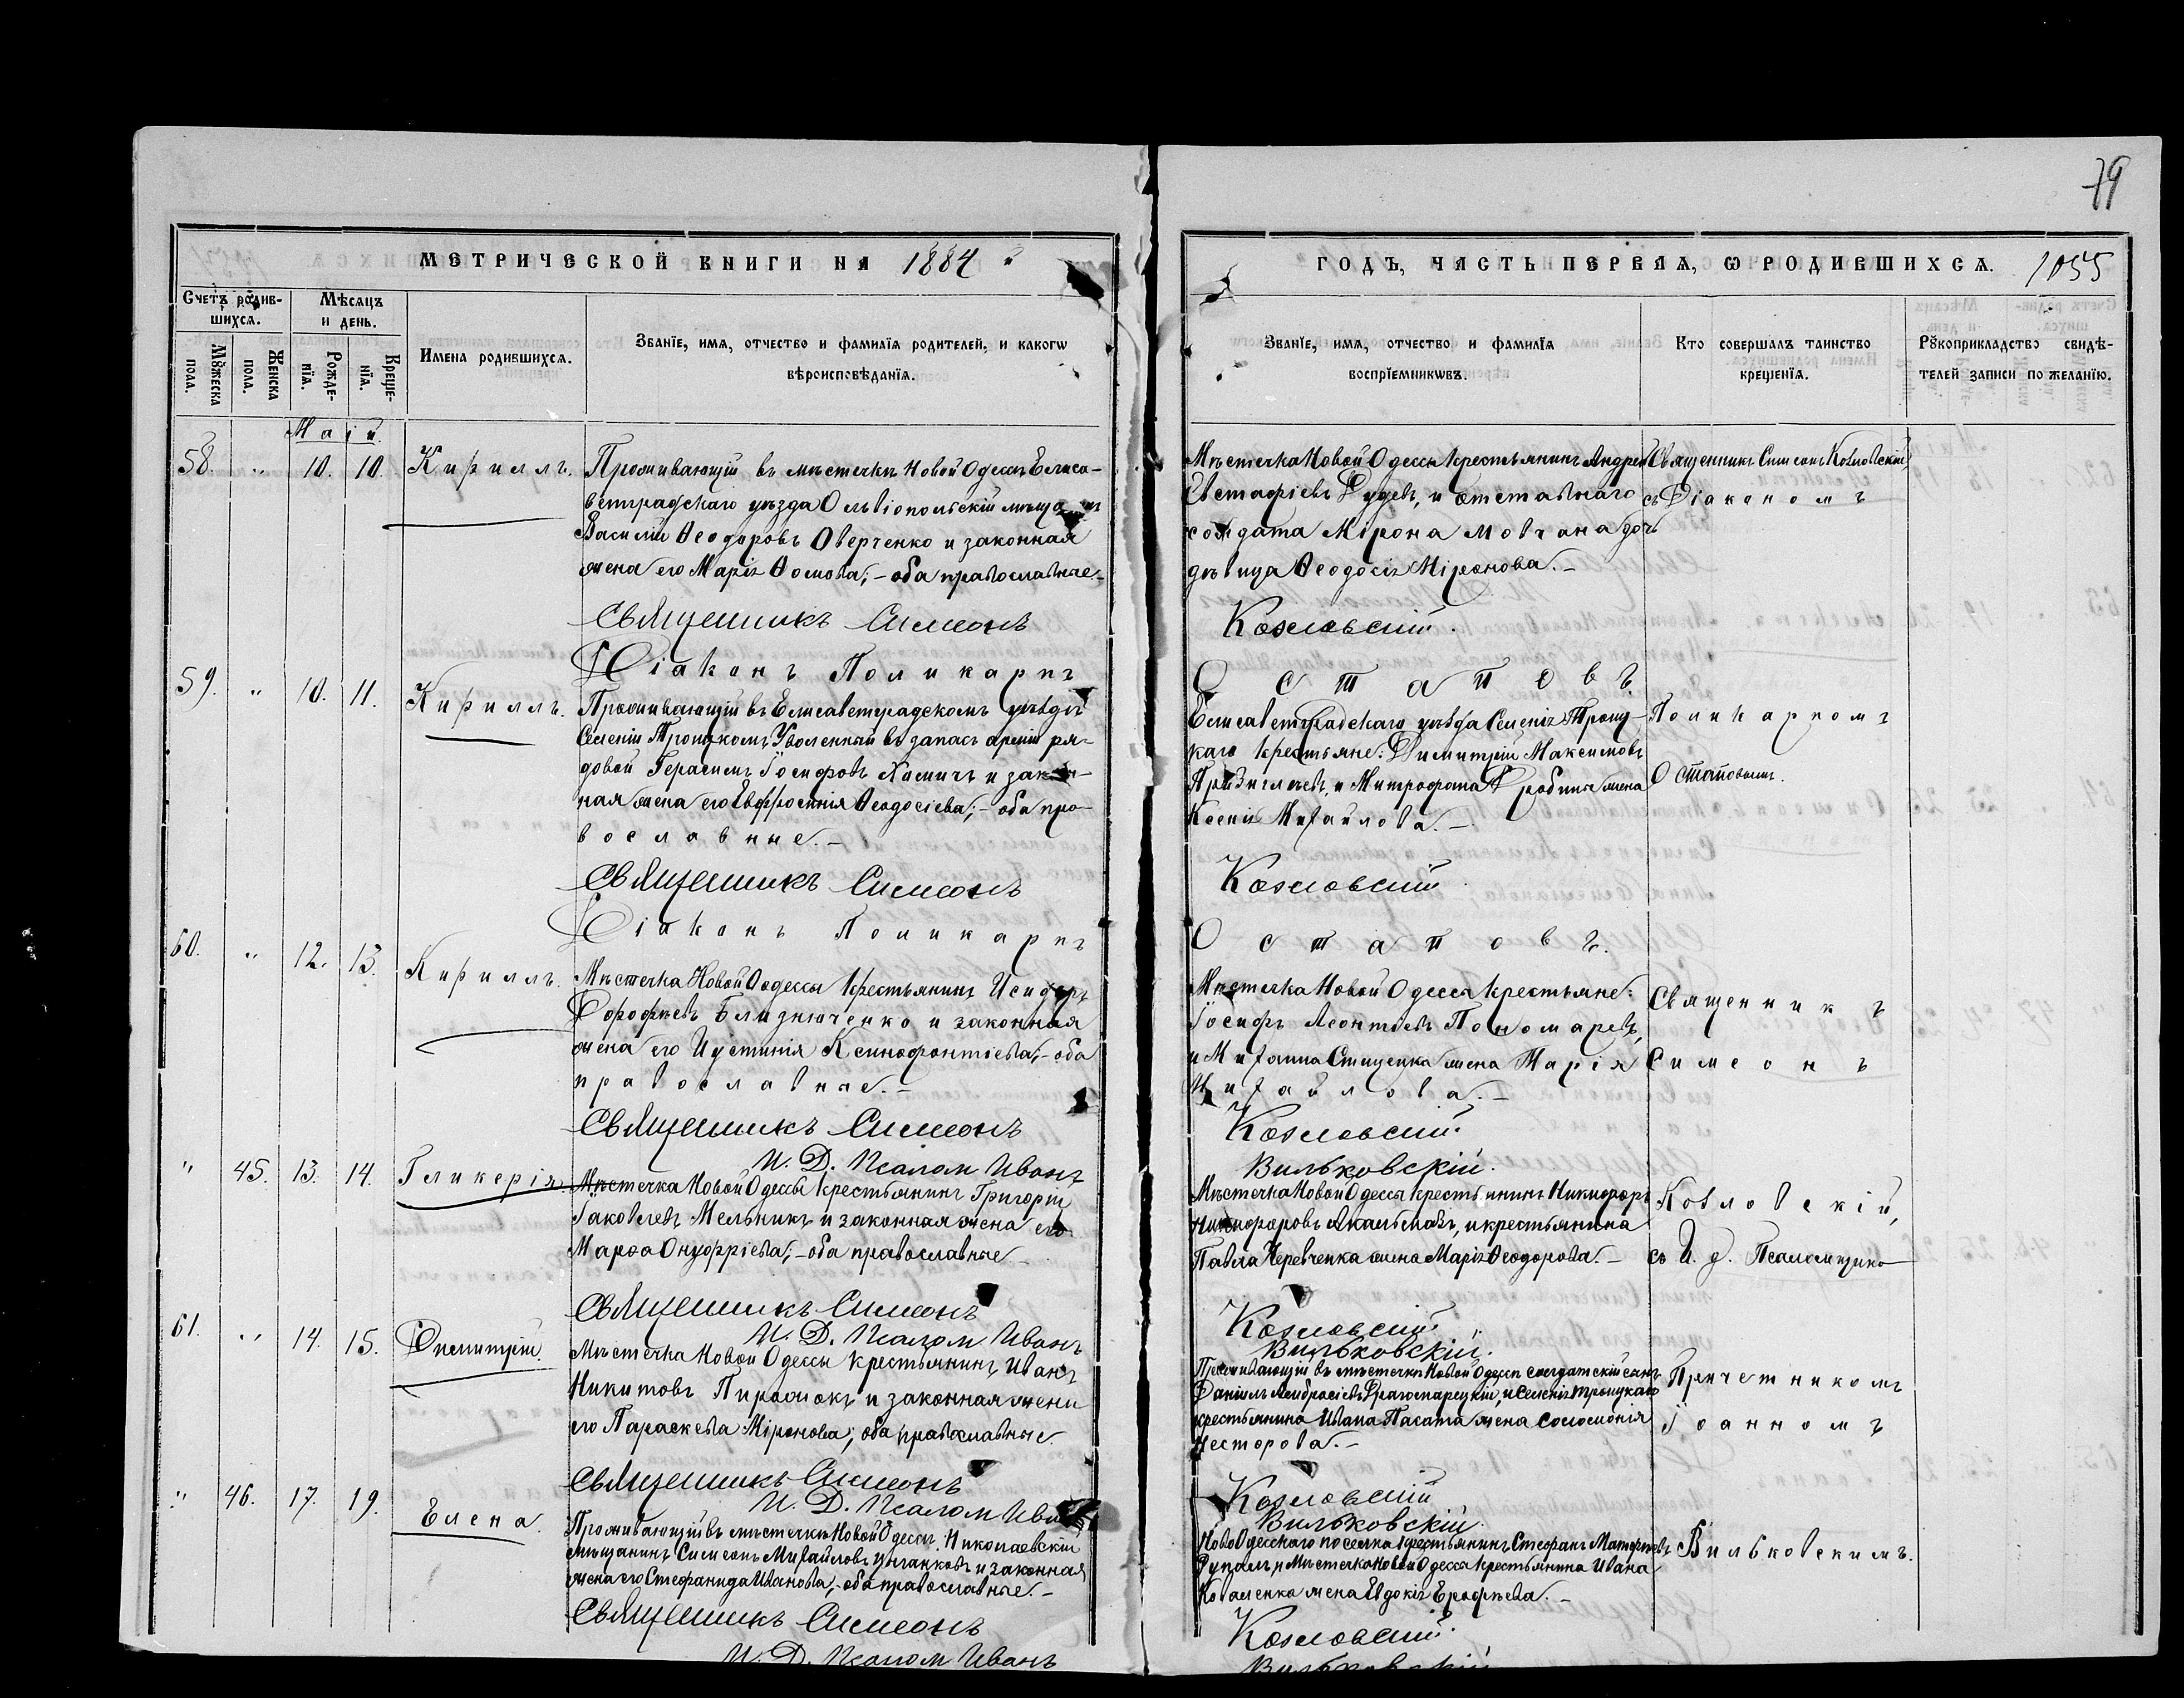 79
МЕТРИЧЕСКОЙ КНИГИ НА 1884
ГОДЪ, ЧАСТЬ ПЕРВАЯ, Ѡ РОДИВШИХСѦ. 1055
Счетъ родив-
шихсѧ.
Мѣсѧцъ
и день.
Мꙋжеска
пола.
Женска
пола.
Рожде-
нїѧ.
Креще-
нїѧ.
Имена родившихсѧ.
Званїе, имѧ, отчество и фамилїѧ родителей, и какогѡ
вѣроисповѣданїѧ.
Званїе, имѧ, отчество и фамилїѧ
воспрїемникѡвъ.
Кто совершалъ таинство
крещенїѧ.
Рꙋкоприкладство свидѣ-
телей записи по желанїю.
Маій.
58. " 10. 10. Кириллъ.
Проживающій въ мѣстечкѣ Новой Одессѣ Елиса-
ветградскаго уѣзда Ольвіопольскій
Василій Ѳеодоровъ Оверченко и законная
жена его Марія Ѳомова; - оба православные.-
Священникъ Симеонъ
Діаконъ Поликарпъ
Мѣстечка Новой Одессы крестьянинъ Андрей
Евстафіевъ Дудевъ, и отставнаго
солдата Мірона Мовчана дочь
дѣвица Ѳеодосія Міронова. -
Козловскій.
Остаповъ.
Священникъ Симеонъ Козловскій
съ Діакономъ
59. " 10. 11. Кириллъ.
Проживающій въ Елисаветградскомъ уѣздѣ
Селеніи Троицкомъ Уволенный въ запасъ арміи ря-
довой Герасимъ Іосифовъ Хомичъ и закон-
ная жена его Евфросинія Ѳеодосіева; - оба пра-
вославные. -
Священникъ Симеонъ
Діаконъ Поликарпъ
Елисаветградскаго уѣзда Селенія Троиц-
каго крестьяне: Димитрій Максимовъ
и Митрофана жена
Ксенія Михайлова. -
Козловскій
Остаповъ.
Поликарпомъ
Остаповымъ.
60. " 12. 13. Кириллъ.
Мѣстечка Новой Одессы крестьянинъ Исидоръ
Дорофѣевъ Близнюченко и законная
жена его Иустинія Ксинофонтіева; - оба
православные. -
Священникъ Симеонъ
И. Д. Псалом Иванъ
Мѣстечка Новой Одессы крестьяне:
Іосифъ Леонтіевъ Пономаревъ,
и Михаила Стиценка жена Марія
Михайлова. -
Козловскій.
Вильковскій.
Священникъ
Симеонъ
" 45. 13. 14. Гликерія.
Мѣстечка Новой Одессы крестьянинъ Григорій
Іаковлевъ Мельникъ и законная жена его
Марѳа Онуфріева; - оба православные -
Священникъ Симеонъ
И. Д. Псалом Иванъ
Мѣстечка Новой Одессы крестьянинъ Никифоръ
Никифоровъ и крестьянина
Павла Черевченка жена Марія Ѳеодорова. -
Козловскій
Вильковскій.
Козловскій,
съ И. д. Псаломщика
61. " 14. 15. Димитрій.
Мѣстечка Новой Одессы крестьянинъ Иванъ
Никитовъ Пирожокъ и законная жена
его Параскева Міронова; оба православные.
Священникъ Симеонъ
И. Д. Псалом Иванъ
Проживающій въ мѣстечкѣ Новой Одессѣ солдатскій сынъ
Даніилъ Амбросіевъ и Селенія Троицкаго
крестьянина Ивана Пасата жена Соломонія
Несторова. -
Козловскій
Вильковскій.
Причетникомъ
Іоанномъ
" 46. 17. 19. Елена.
Проживающій въ мѣстечкѣ Новой Одессѣ Николаевскій
мѣщанинъ Симеонъ Михайловъ и законная
жена его Стефанида Иванова; - оба православные. -
Священникъ Симеонъ
И. Д. Псалом Иванъ
НовоОдесскаго поселка крестьянинъ Стефанъ Матфѣевъ
и Мѣстечка Новой Одессы крестьянина Ивана
Коваленка жена Евдокія Ерофѣева. -
Козловскій.
Вильковскій
Вильковскимъ.